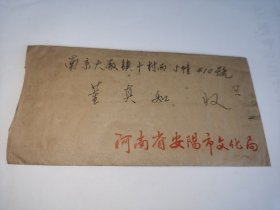 南京大厰鎮十村西5幢410號
董真如 收
河南省安陽市文化局